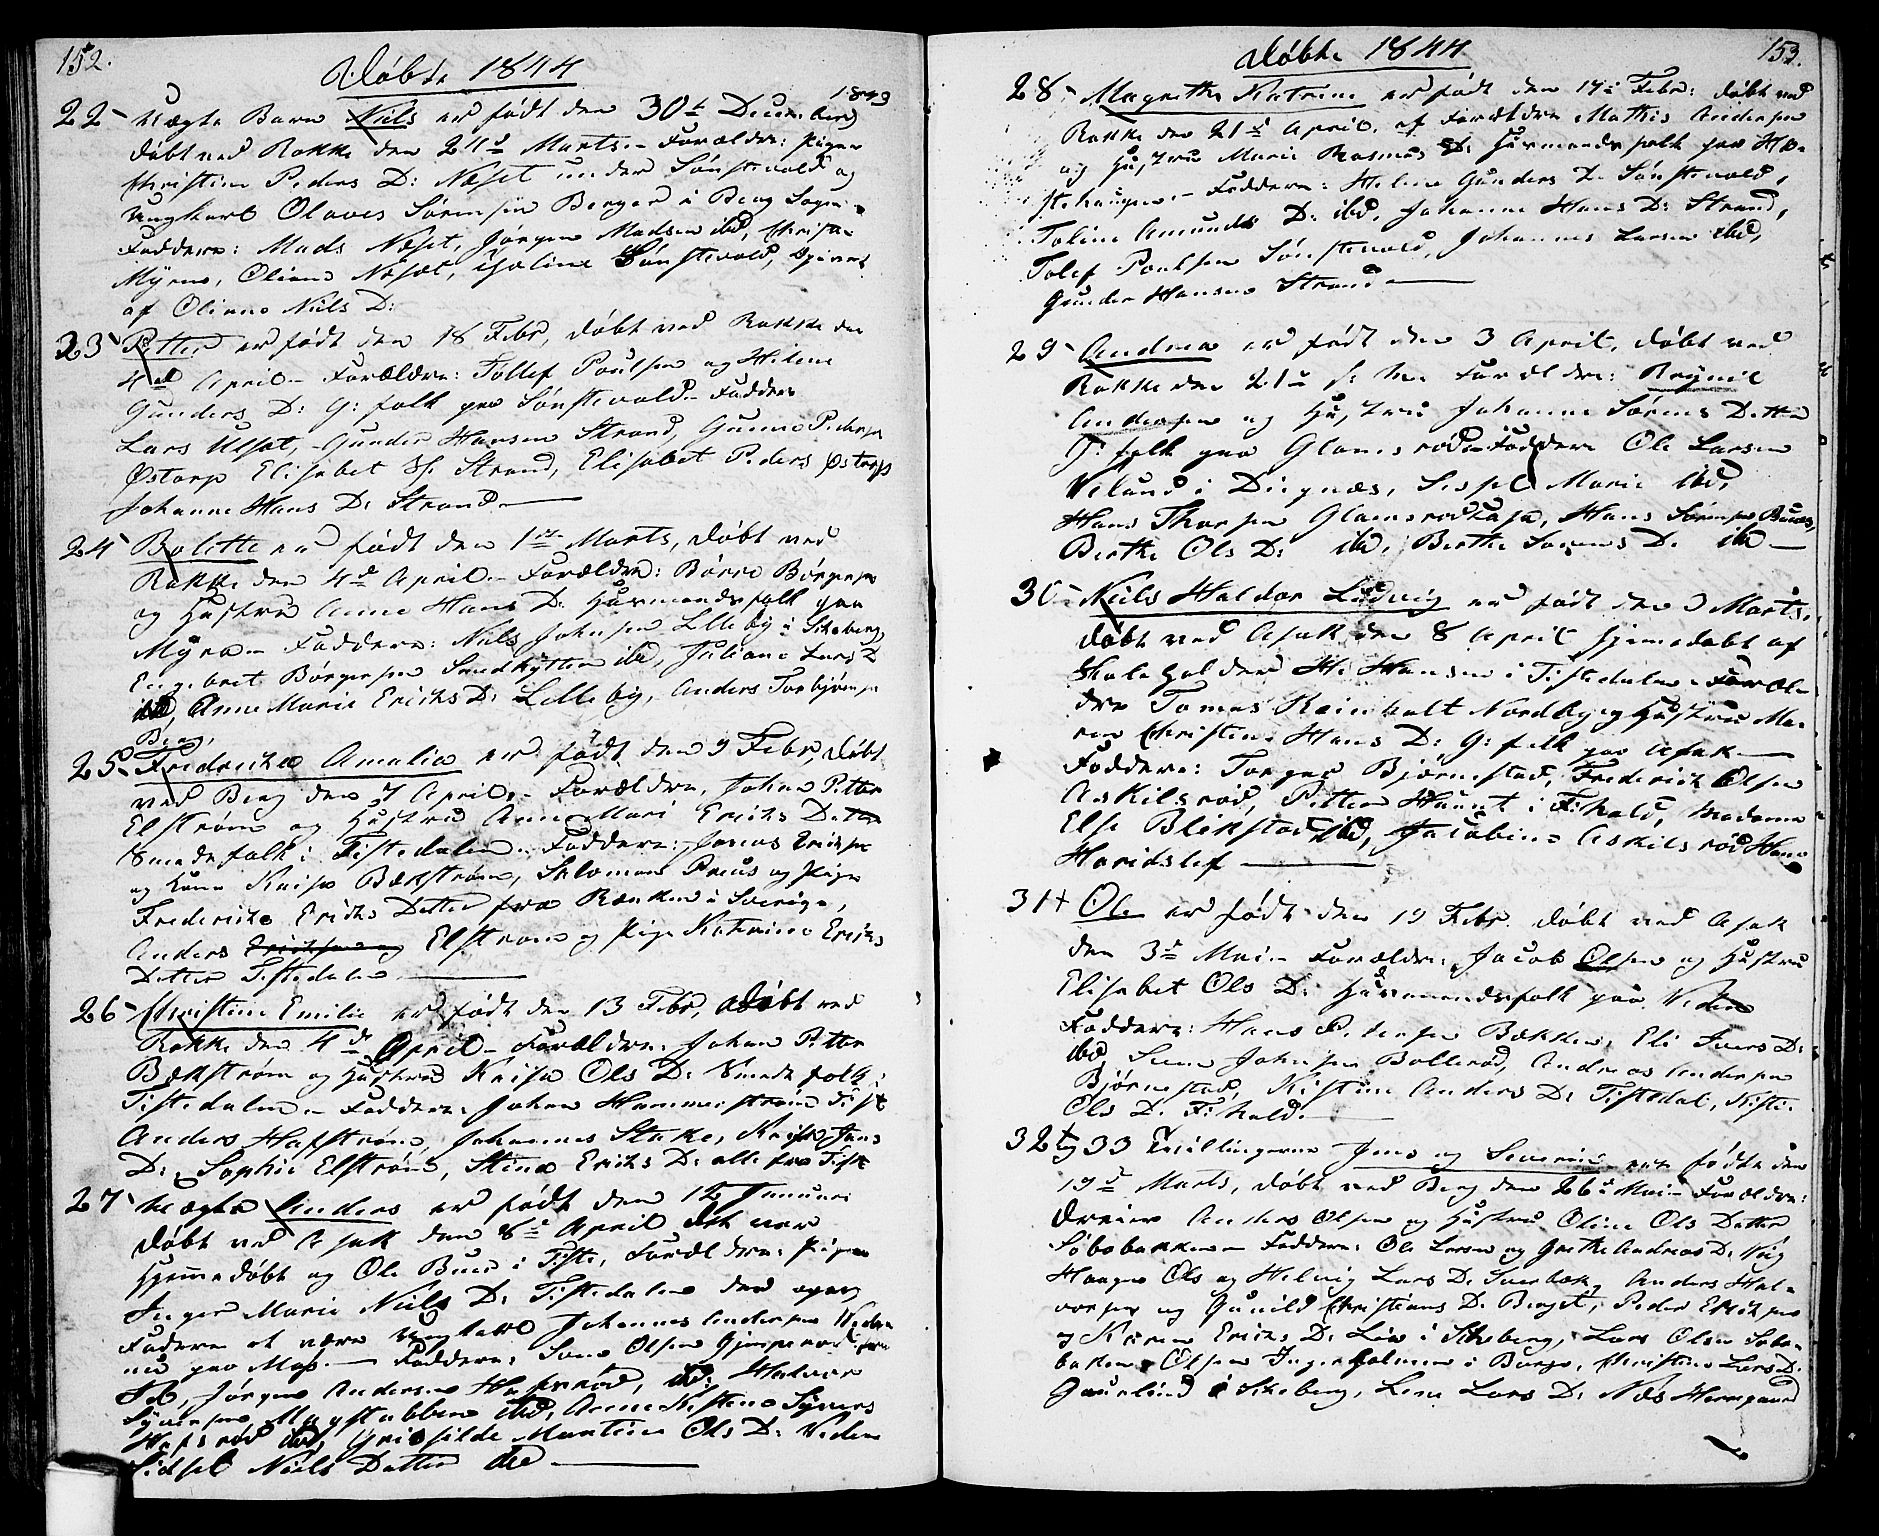 152.
Døbte 1844
22 - Uægte Barn Niels er født den 30te December 1843
døbt ved Rokke den 24de Marts - Forældre: Pigen
Christine Peders D: Næset under Sønstevold og
Ungkarl Olaves Sørensen Berger i Berg Sogn -
Faddere: Mads Næset, Jørgen Madsen ibd,
Myren, Oliane Næset, Sønstevold,
af Oliane Niels D:
23 - Petter er født den 18 Febr, døbt ved Rokke den
4de April - Forældre: Tollef Poulsen og Helene
Gunders D: G: folk paa Sønstevold - Faddere
Lars Ulset, Gunder Hansen Strand, Gunder Pedersen
Østorp Elisabet Strand, Elisabet Peders Østorp
Johanne Hans D: Strand -
24 - Bolette er født den 1ste Marts, døbt ved
Rokke den 4de April - Forældre: Børre Børgersen
og Hustru Anne Hans D. Huusmandsfolk paa
Myra - Faddere: Niels Johnsen Lilleby i Skeberg,
Engebret Børgersen Sandhytten ibd, Juliane Lars D
ibd, Anne Marie Eriks D: Lilleby, Anders Torbjørnsen
Berg,
25 - Fredrikke Amalia er født den 9 Febr, døbt
ved Berg den 7 April - Forældre, Johan Petter
Elstrøm og Hustru Anne Mari Eriks Datter
Smedefolk i Tistedalen - Faddere: Jonas Eriksen
og Kone Kaisa Bækstrøm, Salomon Preus og Pige
Frederikke Eriks Datter fra Bænken i Sverige,
Anders Elstrøm og Pige Katrine Eriks
Datter Tistedalen
26 - Christine Emilie er født den 13 Febr, døbt ved
Rokke den 4de April - Forældre: Johan Petter
Bækstrøm og Hustru Kaisa Ols D: Smedefolk i
Tistedalen - Faddere: Johan Hammerstrøm Tist
Anders Hafstrøm, Johannes Stake, Kaisa Jans
D:, Sophie Elstrøm, Stina Eriks D: alle fra Tist
27 - Uægte Anders er født den 12 Januari
døbt ved Asak den 8de April det var
hjemmedøbt og Ole Buer i Tiste, Forældre: Pigen
Inger Marie Niels D: Tistedalen der opgav
Faderen at være Ungkarl Johannes Andersen Veden
nu paa - Faddere: Olsen
Jørgen Andersen Hafsrød, ibd, Halvor
Syversen, Magstubben ibd, Anne Kistine Syvers
Hafsrød ibd, Grisilde Martine Ols D: Veden
Sidsel Niels Datter ibd
153.
Døbte 1844
28 - Magrethe Katrine er født den 17de Febr: døbt ved
Rokke den 21de April, af Forældre Mathis Andersen
og Hustru Marie Rasmus D: Huusmandsfolk paa Hø-
stehaugen - Faddere: Helene Gunders D. Sønstevold,
Toline Amunds D: ibd, Johanne Hans D: Strand,
Tolef Poulsen Sønstevold, Johannes Larsen ibd,
Gunder Hansen Strand -
29 - Andrea er født den 3 April, døbt ved
Rokke den 21de Forældre: Brynil
Andersen og Hustru Johanne Sørens Datter
G: folk paa Glamsrød - Faddere Ole Larsen
Veland i Digenæs, Marie ibd,
Hans Thorsen Glamsrød, Hans Sørensen Buaas,
Berthe Ols D: ibd, Berthe Sørens D: ibd -
30 - Niels Haldor Ludvig er født den 9 Marts,
døbt ved Asak den 8 April hjemedøbt af
Skoleholder H: Hansen i Tistedalen - Foræl-
dre Tomas Reinholt Nordby og Hustru Ma-
ren Christine Hans D: G: folk paa Asak -
Faddere: Torger Bjørnestad, Frederick Olsen
Askilsrød, Petter Haunt i F:hald, Madame
Else Blikstad ibd, Jacobine Askilsrød Hans
Haridslef
31+ Ole er født den 19 Febr. døbt ved Asak
den 3de Mai - Forældre: Jacob Olsen og Hustru
Elisabet Ols D: Huusmandsfolk paa Veden
Faddere: Hans Pedersen Bækken, Eli Ivers D:
ibd, Johnsen Bollerød, Andreas Andersen
Bjørnestad, Kistine Anders D: Tistedal, Kisti-
Ols D. F:hald.
32+ og 33 Tvillingerne Jens og Severine ere fødte den
19de Marts, døbt ved Berg den 26de Mai - Forældre:
Dreier Anders Olsen og Hustru Oline Ols Datter
Søbobakken - Faddere: Ole Larsen og Grethe Andreas D:
Haagen Ols og Helvig Lars D: Sverbæk, Anders Hal-
vorsen og Gunild Christians D: Berget, Peder Eriksen
og Karen Eriks D: Løw i Skeberg, Lars Olsen Søbo-
bakken, Olsen Ingerholmen i Borge, Christine Lars D:
Gaurlund i Skeberg, Lene Lars D: Næs Herregaard